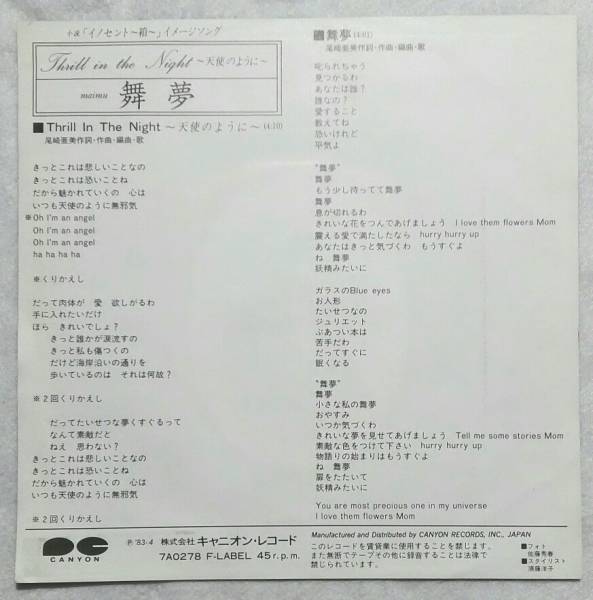 小泉「イノセント〜箱〜」イメージソング
Thrill in the Night 〜天使のように〜
maimu 舞夢
■Thrill In The Night 〜天使のように〜(4:10)
尾崎亜美作詞・作曲・編曲・歌
きっとこれは悲しいことなの
きっとこれは恐いことね
だから魅かれていくの 心は
いつも天使のように無邪気
※Oh I'm an angel
Oh I'm an angel
Oh I'm an angel
ha ha ha ha
※くりかえし
だって肉体が 愛 欲しがるわ
手に入れたいだけ
ほら きれいでしょ?
きっと誰かが涙流すの
きっと私も傷つくの
だけど海岸沿いの通りを
歩いているのは それは何故?
※2回くりかえし
だってたいせつな夢くすぐるって
なんて素敵だと
ねえ 思わない?
きっとこれは悲しいことなの
きっとこれは恐いことね
だから魅かれていくの 心は
いつも天使のように無邪気
※2回くりかえし
■舞夢(4:01)
尾崎亜美作詞・作曲・編曲・歌
叱られちゃう
見つかるわ
あなたは誰?
誰なの?
愛すること
教えてね
恐いけれど
平気よ
"舞夢"
舞夢
もう少し待ってて舞夢
舞夢
息が切れるわ
きれいな花をつんであげましょう I love them flowers Mom
震える愛で満たしたなら hurry hurry up
あなたはきっと気づくわ もうすぐよ
ね 舞夢
妖精みたいに
ガラスのBlue eyes
お人形
たいせつなの
ジュリエット
ぶあつい本は
苦手だわ
だってすぐに
眠くなる
"舞夢"
舞夢
小さな私の舞夢
おやすみ
いつか気づくわ
きれいな夢を見せてあげましょう Tell me some stories Mom
素敵な色をつけて下さい hurry hurry up
物語りの始まりはもうすぐよ
ね 舞夢
扉をたたいて
妖精みたいに
You are most precious one in my universe
I love them flowers Mom
CANYON
℗'83・4 株式会社キャニオン・レコード
7A0278 F-LABEL 45r.p.m.
Manufactured and Distributed by CANYON RECORDS, INC., JAPAN
このレコードを賃貸業に使用することを禁じます。
また無断でテープその他に録音することは法律で
禁じられています。
■フォト
佐藤秀春
■スタイリスト
須藤洋子